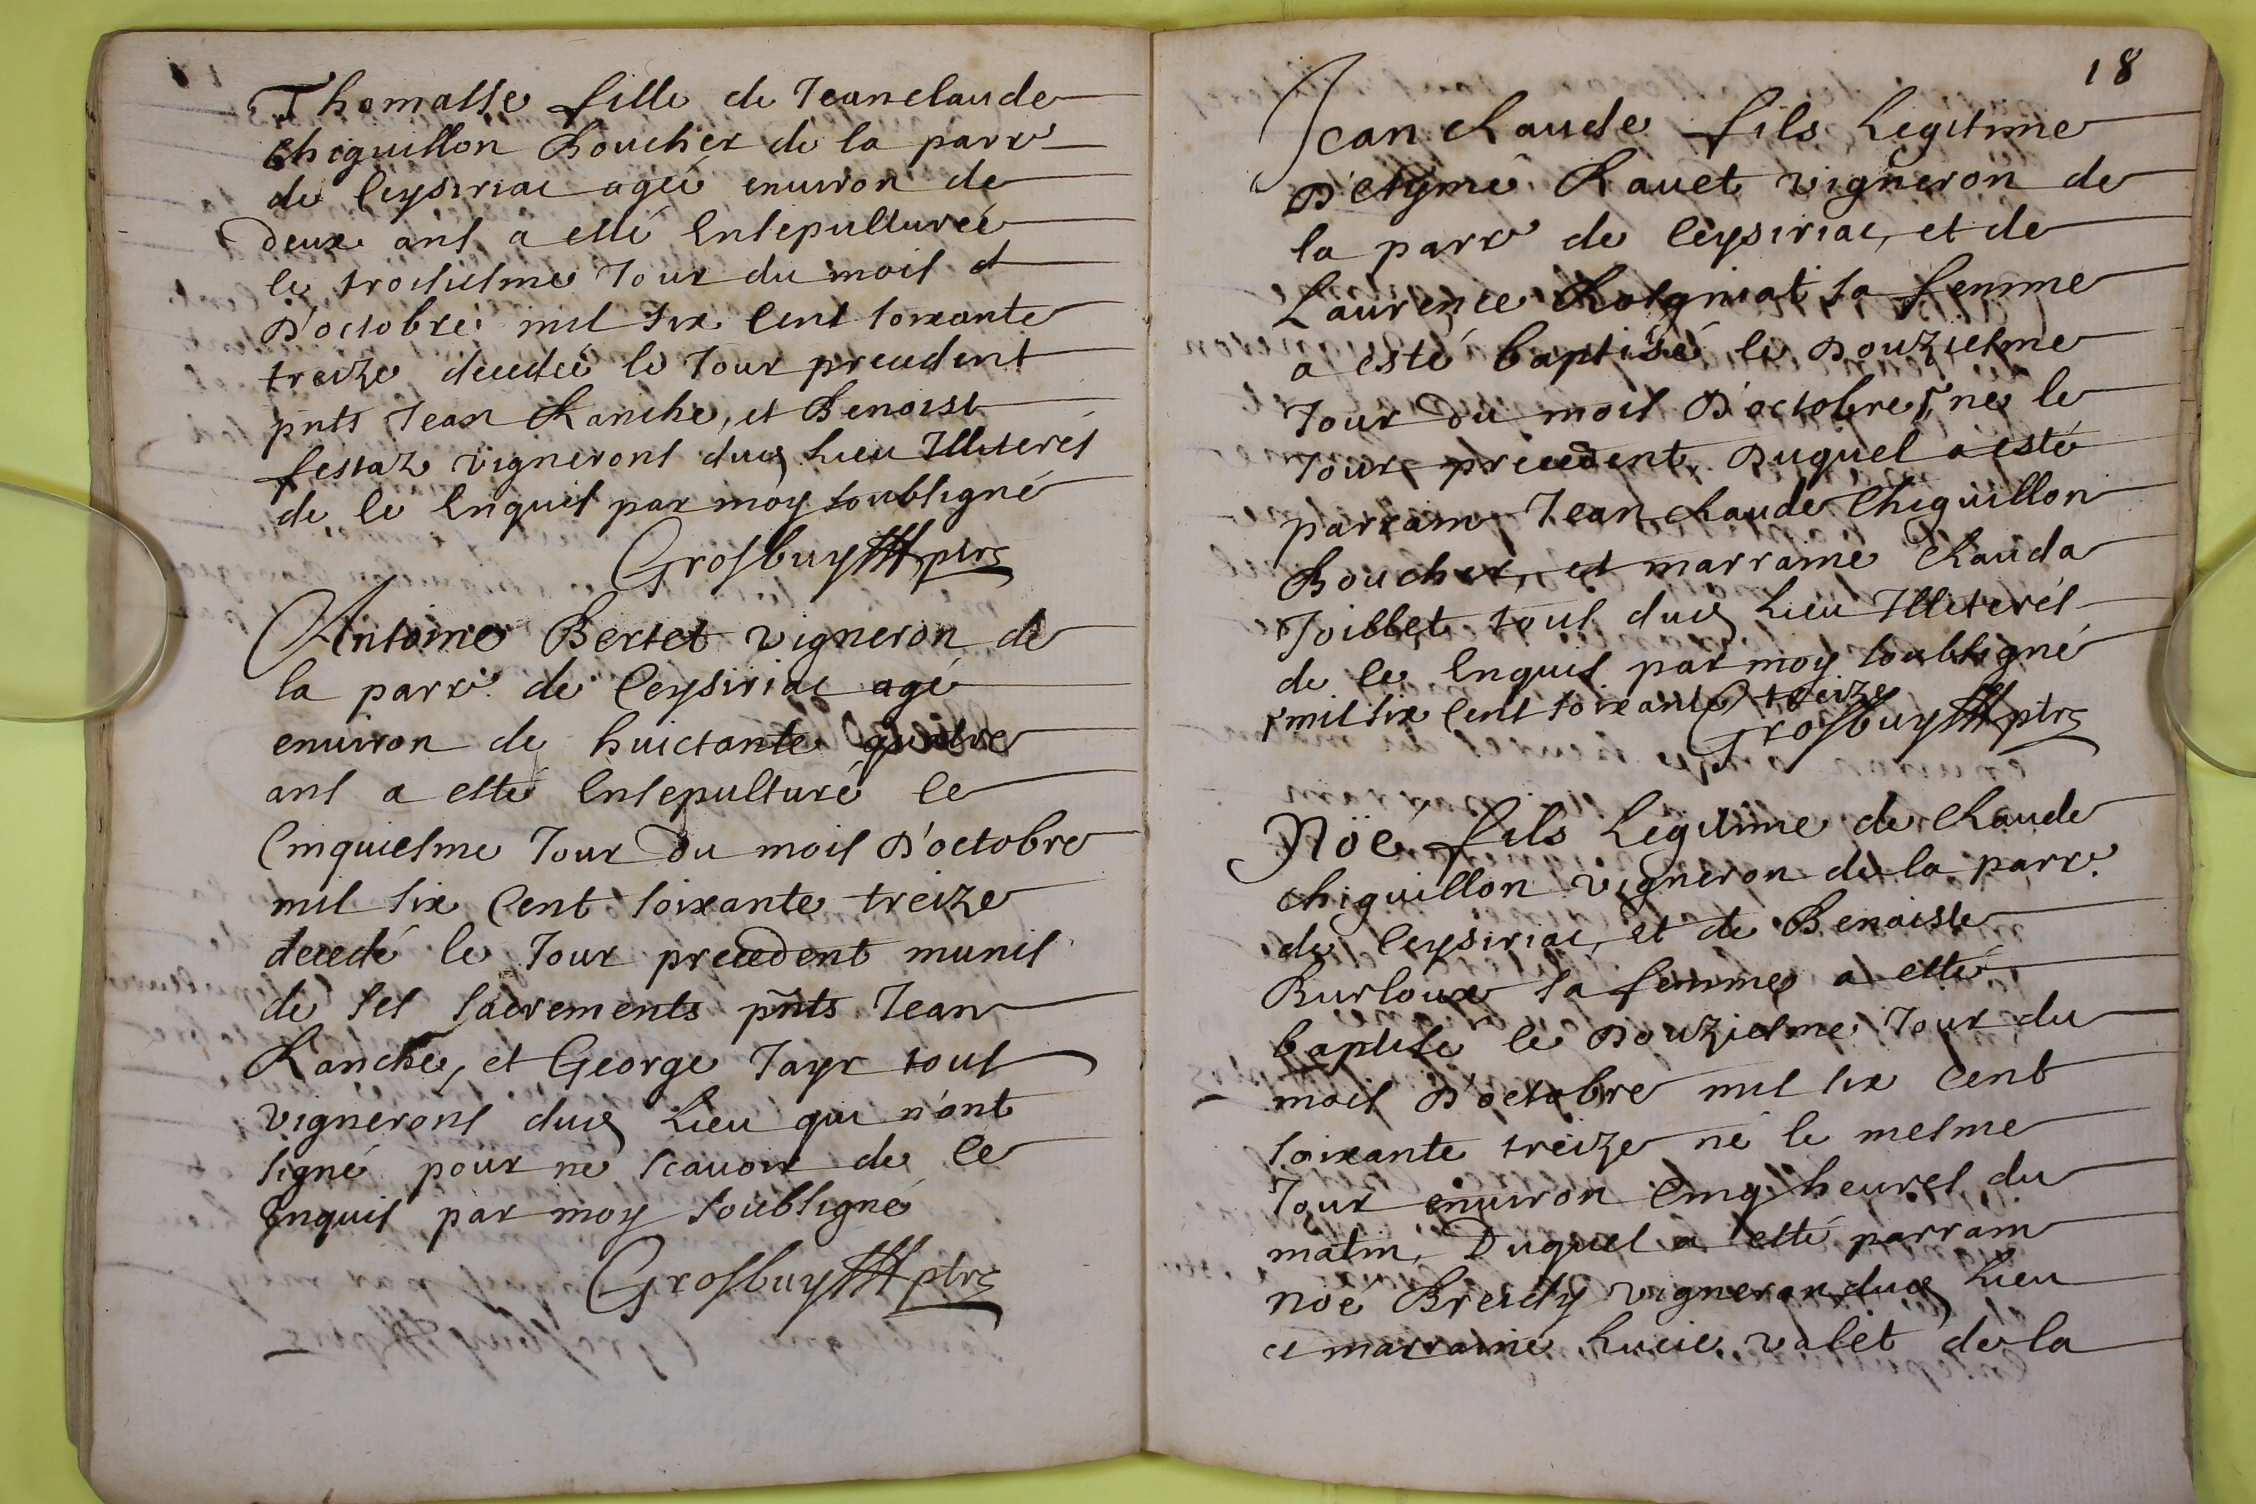 Thomasse fille de Jeanclaude
Chiquillon Boucher de la parr.e
de Ceysiriac agée enuiron de
deux ans a esté Ensepulturée
le troisiesme Jour du mois d
D'octobre mil six Cent soixante
treize decedée le Jour precedent
pñts Jean Ranche, et Benoist
festaz vignerons dud. Lieu Illiterés
de ce Enquis par moy soubsigné
Grosbuy ptre
Antoine Bertet vigneron de
la parr.e de Ceysiriac agé
enuiron de huictante quatre
ans a esté Ensepulturé le
Cinquiesme Jour du mois D'octobre
mil six Cent soixante treize
decedé le Jour precedent munis
de ses sacrements pñts Jean
Ranche, et George Jayr tous
vignerons dud. Lieu qui n'ont
signé pour ne scauoir de ce
Enquis par moy soubsigné
Grosbuy ptre
18
Jean Claude fils Legitime
D'Aymé Rauet vigneron de
la parr.e de Ceysiriac, et de
Laurence Rosgniat sa femme
a esté baptisé le Douziesme
Jour du mois D'octobre né le
Jour precedent, Duquel a esté
parrain Jean Claude Chiquillon
Boucher, et marraine Clauda
Joillet tous dud. Lieu Illiterés
de ce Enquis par moy soubsigné
mil six Cent soixante treize
Grosbuy ptre
Nöé fils Legitime de Claude
Chiquillon vigneron de la parr.e
de Ceysiriac, et de Benoiste
Burloux sa femme a esté
baptisé le Douziesme Jour du
mois D'octobre mil six Cent
soixante treize né le mesme
Jour enuiron Cinq heures du
matin, Duquel a esté parrain
Noé vigneron dud. Lieu
et marraine Lucie valet de la